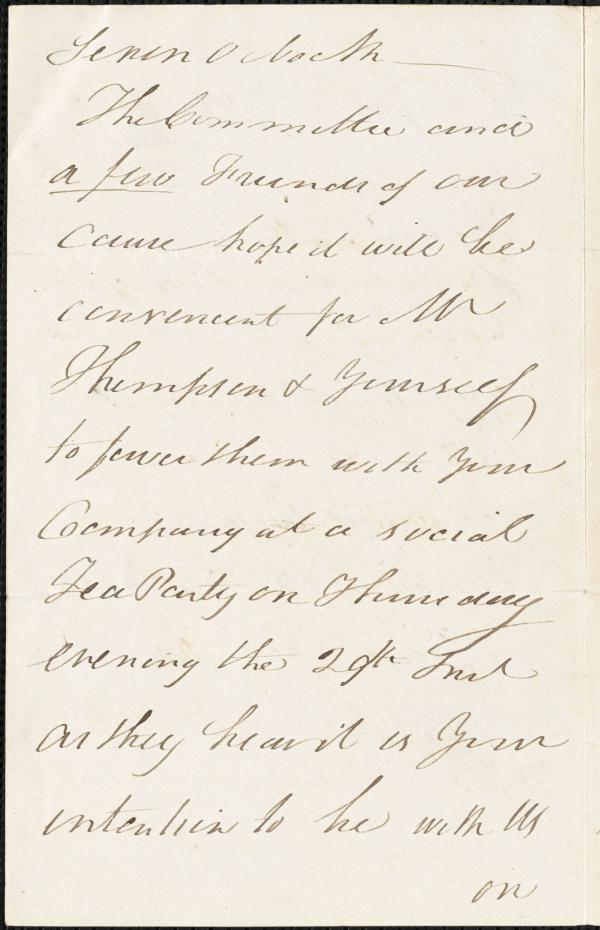 Seven O Clock
The Committee and
a few Friends of our
cause hope it will be
convenient for Mr
Thompson & Yourself
to favor them with Your
Company at a social
Tea Party on Thursday
evening the 29th Inst
as they hear it is Your
intention to be with Us
on